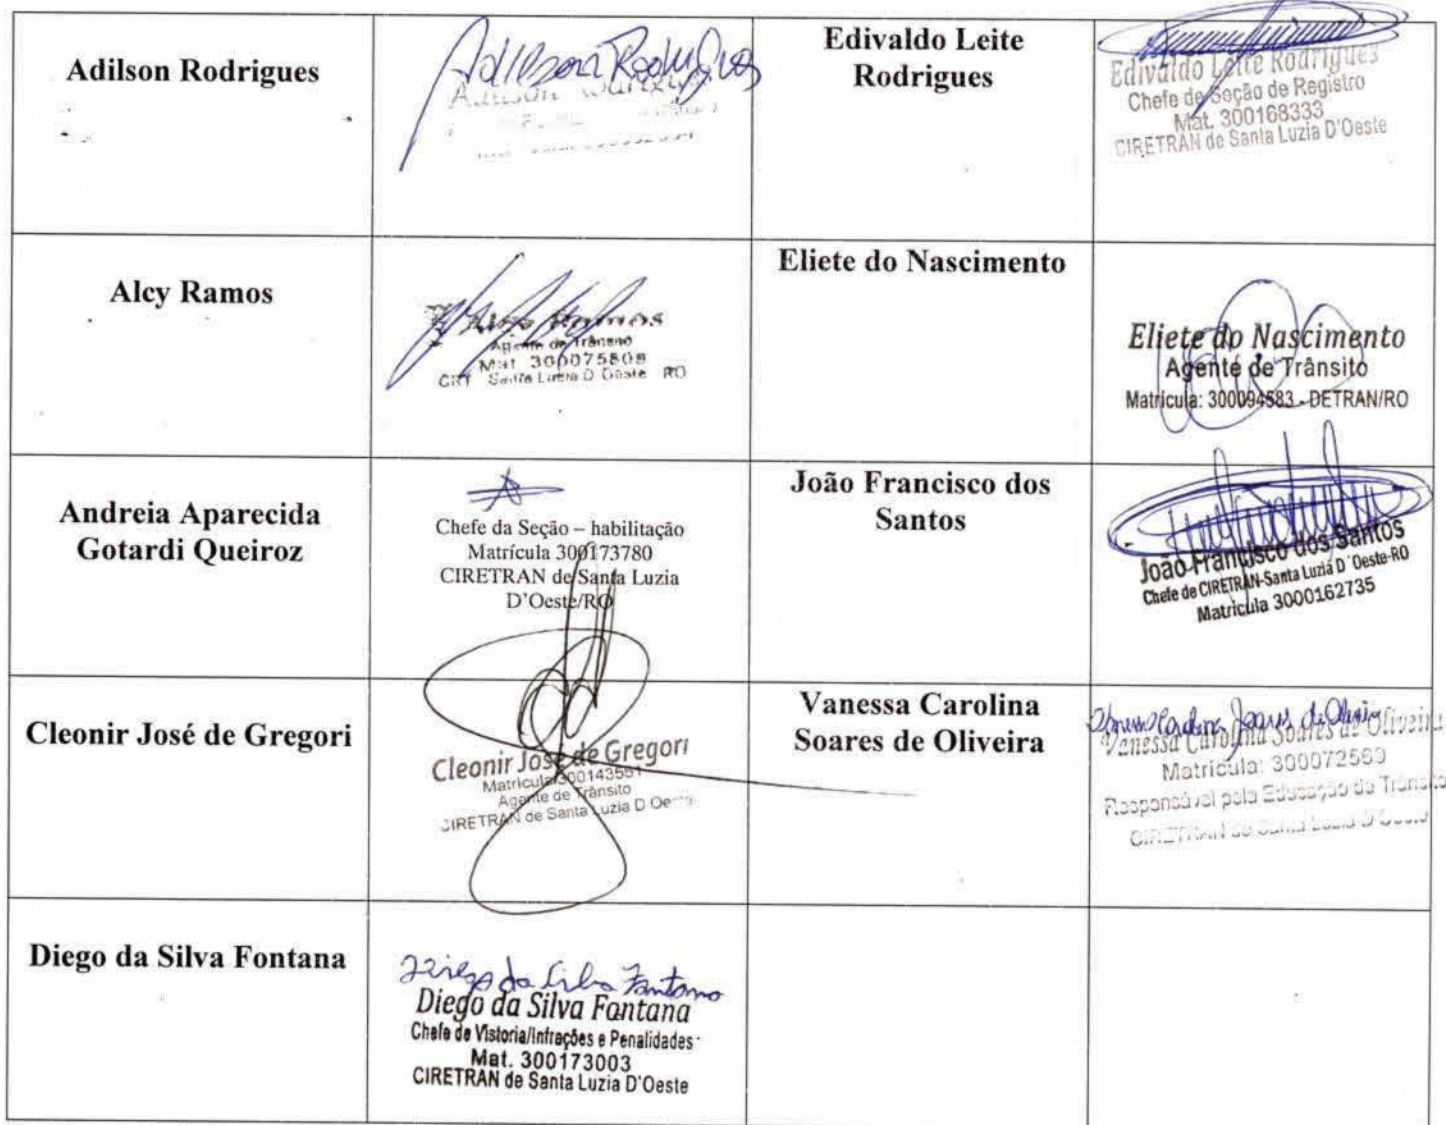 Adilson Rodrigues
Adilson Rodrigues
Adilson
Edivaldo Leite
Rodrigues
Edivaldo Leite Rodrigues
Chefe de Seção de Registro
Mat. 300168333
CIRETRAN de Santa Luzia D'Oeste
Alcy Ramos
Ramos
Agente de Trânsito
Mat. 300075808
CRT Santa Luzia D. Oeste RO
Eliete do Nascimento
Eliete do Nascimento
Agente de Trânsito
Matrícula: 300094583 - DETRAN/RO
Andreia Aparecida
Gotardi Queiroz
Chefe da Seção – habilitação
Matrícula 300173780
CIRETRAN de Santa Luzia
D'Oeste/RO
João Francisco dos
Santos
João Francisco dos Santos
Chefe de CIRETRAN-Santa Luzia D´Oeste-RO
Matricula 3000162735
Cleonir José de Gregori
Cleonir José de Gregori
Matricula 300143561
Agente de Trânsito
CIRETRAN de Santa Luzia D Oeste
Vanessa Carolina
Soares de Oliveira
Vanessa Carolina Soares de Oliveira
Vanessa Carolina Soares de Oliveira
Matrícula: 300072560
Responsável pela Educação de Trânsito
CIRETRAN de Santa Luzia D'Oeste
Diego da Silva Fontana
Diego da Silva Fontana
Diego da Silva Fontana
Chefe de Vistoria/Infrações e Penalidades
Mat. 300173003
CIRETRAN de Santa Luzia D'Oeste